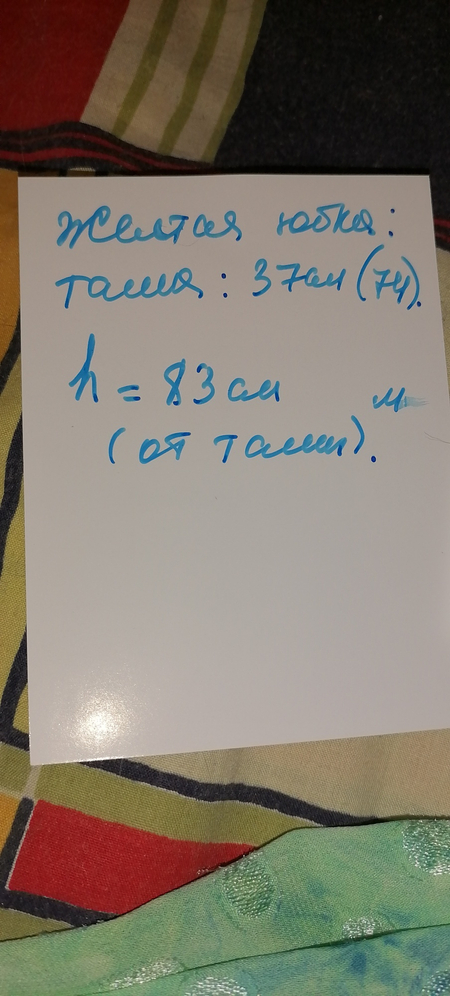 Желтая юбка:
талия: 37см (74).
h = 83 см
(от талии).